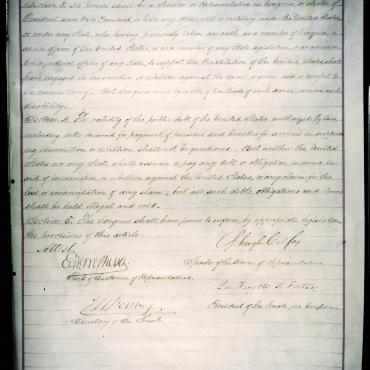 Section 3. No person shall be a Senator or Representative in Congress, or elector of
President and Vice President, or hold any office, civil or military, under the United States,
or under any State, who having previously taken an oath, as a member of Congress, or
as an officer of the United States, or as a member of any State legislature, or as an execu-
tive or judicial officer of any State, to support the Constitution of the United States, shall
have engaged in insurrection or rebellion against the same, or given aid or comfort to
the enemies thereof. But Congress may by a vote of two thirds of each House, remove such
disability.
Section 4. The validity of the public debt of the United States, authorized by law,
including debts incurred for payment of pensions and bounties for services in suppress-
ing insurrection or rebellion, shall not be questioned. But neither the United
States nor any State shall assume or pay any debt or obligation incurred in
aid of insurrection or rebellion against the United States, or any claim for the
loss or emancipation of any slave; but all such debts, obligations and claims
shall be held illegal and void.
Section 5. The Congress shall have power to enforce, by appropriate legislation,
the provisions of this article.
Attest
Schuyler Colfax
Edwd McPherson
Speaker of the House of Representatives.
Clerk of the House of Representatives.
La Fayette S. Foster
J. W. Forney
President of the Senate pro tempore.
Secretary of the Senate.